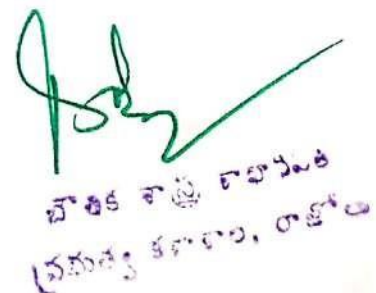 భౌతిక శాస్త్ర శాఖాధిపతి
ప్రభుత్వ కళాశాల, రాజోలు